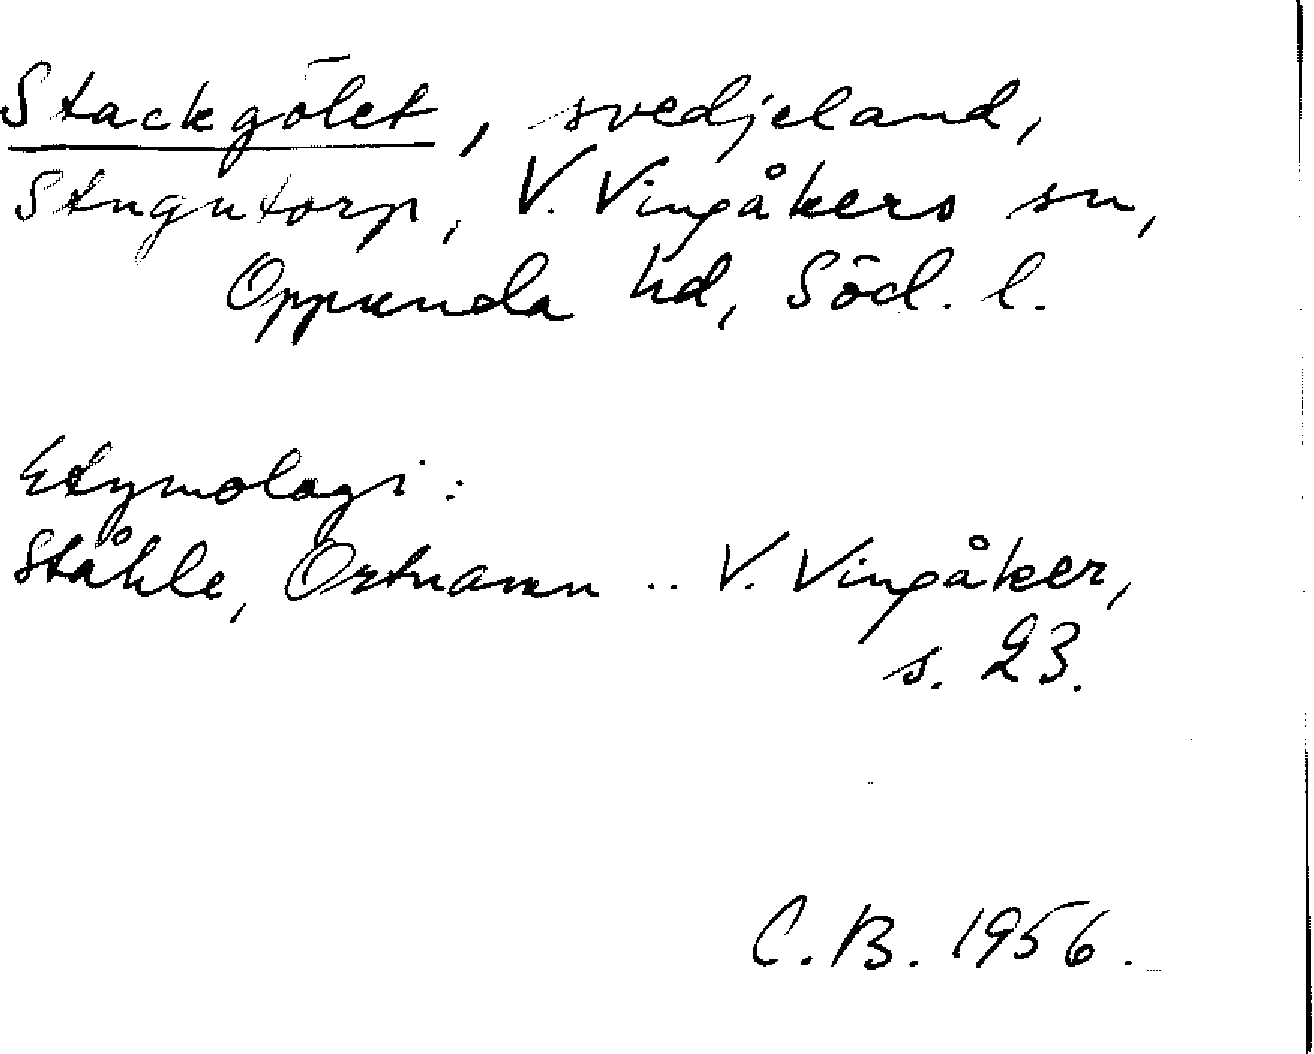 Stackgölet, svedjeland,
Stugutorp, V. Vingåkers sn,
Oppunda hd, Söd. l.
Etymologi:
Ståhle, Ortnamn .. V. Vingåker,
s. 23.
C.B. 1956.